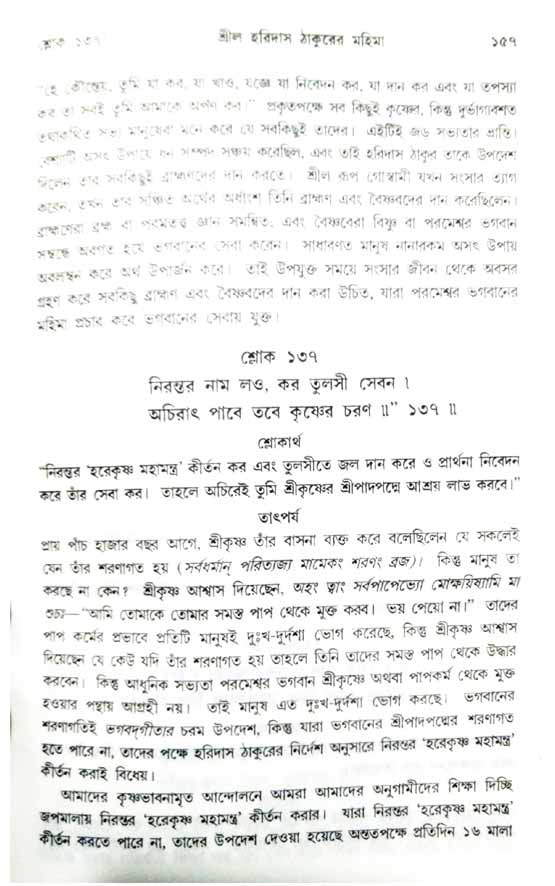 শ্লোক ১৩৭ শ্রীল হরিদাস ঠাকুরের মহিমা ১৫৭
"হে কৌন্তেয়, তুমি যা কর, যা খাও, যজ্ঞে যা নিবেদন কর, যা দান কর এবং যা তপস্যা
কর তা সবই তুমি আমাকে অর্পণ কর।" প্রকৃতপক্ষে সব কিছুই কৃষ্ণের, কিন্তু দুর্ভাগ্যবশত
তথাকথিত সভ্য মানুষেরা মনে করে যে সবকিছুই তাদের। এইটিই জড় সভ্যতার ভ্রান্তি।
বেশ্যাটি অসৎ উপায়ে ধন সম্পদ সঞ্চয় করেছিল, এবং তাই হরিদাস ঠাকুর তাকে উপদেশ
দিলেন তার সবকিছুই ব্রাহ্মণদের দান করতে। শ্রীল রূপ গোস্বামী যখন সংসার ত্যাগ
করেন, তখন তার সঞ্চিত অর্থের অর্ধাংশ তিনি ব্রাহ্মণ এবং বৈষ্ণবদের দান করেছিলেন।
ব্রাহ্মণেরা ব্রহ্ম বা পরমতত্ত্ব জ্ঞান সমন্বিত; এবং বৈষ্ণবেরা বিষ্ণু বা পরমেশ্বর ভগবান
সম্বন্ধে অবগত হয়ে ভগবানের সেবা করেন। সাধারণত মানুষ নানারকম অসৎ উপায়
অবলম্বন করে অর্থ উপার্জন করে। তাই উপযুক্ত সময়ে সংসার জীবন থেকে অবসর
গ্রহণ করে সবকিছু ব্রাহ্মণ এবং বৈষ্ণবদের দান করা উচিত, যারা পরমেশ্বর ভগবানের
মহিমা প্রচার করে ভগবানের সেবায় যুক্ত।
শ্লোক ১৩৭
নিরন্তর নাম লও, কর তুলসী সেবন।
অচিরাৎ পাবে তবে কৃষ্ণের চরণ॥" ১৩৭॥
শ্লোকার্থ
"নিরন্তর 'হরেকৃষ্ণ মহামন্ত্র' কীর্তন কর এবং তুলসীতে জল দান করে ও প্রার্থনা নিবেদন
করে তাঁর সেবা কর। তাহলে অচিরেই তুমি শ্রীকৃষ্ণের শ্রীপাদপদ্মে আশ্রয় লাভ করবে।"
তাৎপর্য
প্রায় পাঁচ হাজার বছর আগে, শ্রীকৃষ্ণ তাঁর বাসনা ব্যক্ত করে বলেছিলেন যে সকলেই
যেন তাঁর শরণাগত হয় (সর্বধর্মান্ পরিত্যজ্য মামেকং শরণং ব্রজ)। কিন্তু মানুষ তা
করছে না কেন? শ্রীকৃষ্ণ আশ্বাস দিয়েছেন, অহং ত্বাং সর্বপাপেভ্যো মোক্ষয়িষ্যামি মা
শুচঃ—"আমি তোমাকে তোমার সমস্ত পাপ থেকে মুক্ত করব। ভয় পেয়ো না।" তাদের
পাপ কর্মের প্রভাবে প্রতিটি মানুষই দুঃখ-দুর্দশা ভোগ করেছে, কিন্তু শ্রীকৃষ্ণ আশ্বাস
দিয়েছেন যে কেউ যদি তাঁর শরণাগত হয় তাহলে তিনি তাদের সমস্ত পাপ থেকে উদ্ধার
করবেন। কিন্তু আধুনিক সভ্যতা পরমেশ্বর ভগবান শ্রীকৃষ্ণে অথবা পাপকর্ম থেকে মুক্ত
হওয়ার পন্থায় আগ্রহী নয়। তাই মানুষ এত দুঃখ-দুর্দশা ভোগ করছে। ভগবানের
শরণাগতিই ভগবদ্গীতার চরম উপদেশ, কিন্তু যারা ভগবানের শ্রীপাদপদ্মের শরণাগত
হতে পারে না, তাদের পক্ষে হরিদাস ঠাকুরের নির্দেশ অনুসারে নিরন্তর 'হরেকৃষ্ণ মহামন্ত্র'
কীর্তন করাই বিধেয়।
আমাদের কৃষ্ণভাবনামৃত আন্দোলনে আমরা আমাদের অনুগামীদের শিক্ষা দিচ্ছি
জপমালায় নিরন্তর 'হরেকৃষ্ণ মহামন্ত্র' কীর্তন করার। যারা নিরন্তর 'হরেকৃষ্ণ মহামন্ত্র'
কীর্তন করতে পারে না, তাদের উপদেশ দেওয়া হয়েছে অন্ততপক্ষে প্রতিদিন ১৬ মালা